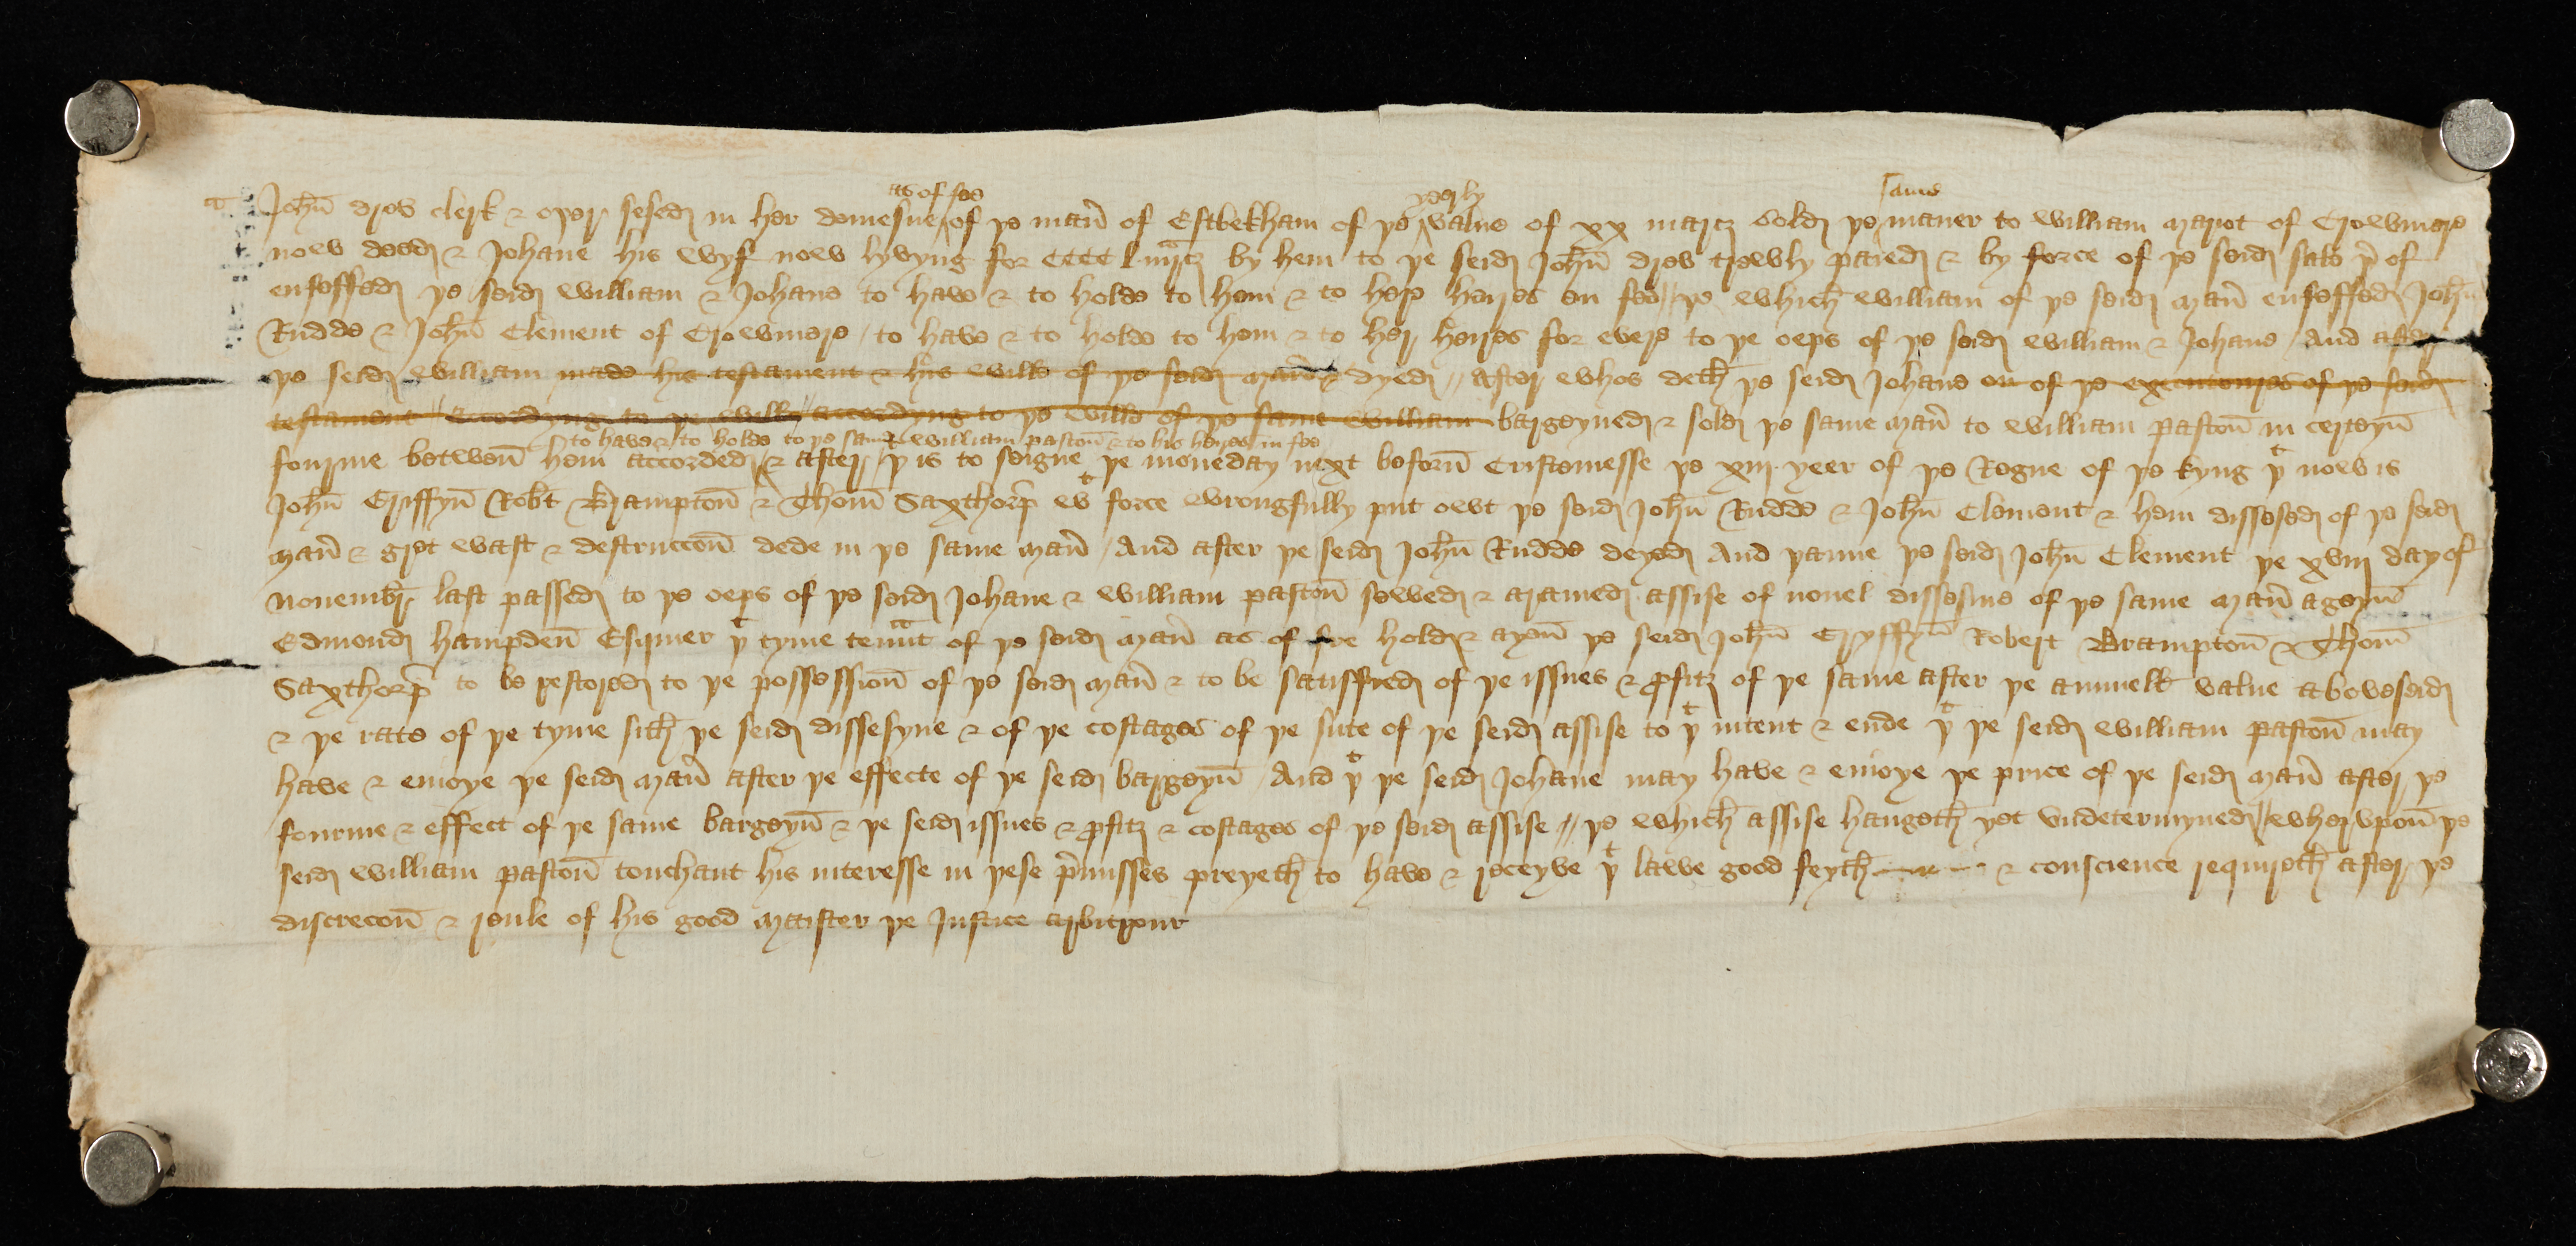 as of fee yeerly same
John Drew clerk & oþer sesed in her demesne of þe man̄ of Estbekham of þe value of xx marcz sold þe maner to William Mariot of Crowmere
now deed & Johane his wyf now lyvyng for CCCC l mrcz by hem to þe seid John̄ Drew trewly paied & by force of þe seid sale þ͛of
enfeffed þe seid William & Johane to have & to holde to hem & to her heires en fee // þe which William of þe seid man̄ enfeffed John̄
Rudde & John̄ Clement of Crowmere / to have & to holde to hem & to her heires for evere to þe oeps of þe seid William & Johane / And after
þe seid William made his testament & his wille of þe seid man̄ & dyed // After whos deth þe seid Johane on of þe executoures of þe seid
testament // accordyng to þe wille // accordyng to þe wille of þe same William bargeyned & sold þe same man̄ to William Paston̄ in certeyn̄
to have & to holde to þe same William Paston̄ & to his heires in fee
fourme betwen̄ hem accorded / & after / þt is to seigne þe moneday next beforn̄ Cristemesse þe xiij yeer of þe Regne of þe kyng þt now is
John̄ Gryffyn̄ Robt Brampton̄ & Thom̄ Saxthorp̄ wt force wrongfully put owt þe seid John̄ Rudde & John̄ Clement & hem dissesed of þe seid
man̄ & gret wast & destruccon̄ dede in þe same man̄ / And after þe seid John̄ Rudde deyed And þanne þe seid John̄ Clement þe xviij day of
Novembr̄ last passed to þe oeps of þe seid Johane & William Paston̄ sewed & aramed assise of novel dissesine of þe same man̄ ageyn̄
Edmond Hampden̄ Esquier þt tyme tenᵃnt of þe seid man̄ as of fre hold & ayen̄ þe seid John̄ Gryffyn̄ Robert Brampton̄ & Thom̄
Saxthorp̄ to be restored to þe possession̄ of þe seid man̄ & to be satisfied of þe issues & ꝓfitz of þe same after þe annuell value aboveseid
& þe rate of þe tyme sith þe seid dissesyne & of þe costages of þe sute of þe seid assise to þt intent & ende þt þe seid William Paston̄ may
have & enioye þe seid man̄ after þe effecte of þe seid bargeyn̄ / And þt þe seid Johane may have & enioye þe price of þe seid man̄ after þe
fourme & effect of þe same bargeyn̄ & þe seid issues & ꝓfitz & costages of þe seid assise // þe which assise hangeth yet undetermyned // wherupon̄ þe
seid William Paston̄ touchant his interesse in þese p̄misses preyeth to have & receyve þt lawe good feyth & conscience requireth after þe
discrecon̄ & reule of his good maister þe Justice arbitrour